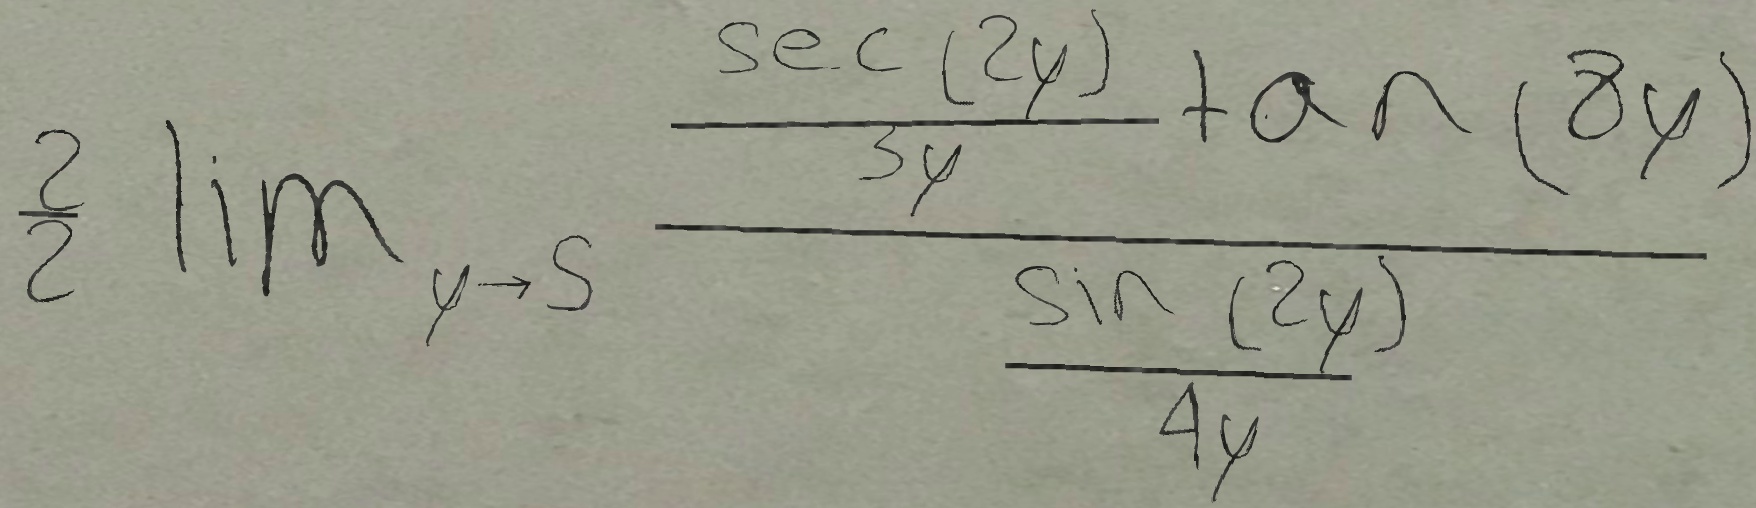 \frac{2}{2} \lim_{y \to 5} \frac{\frac{\sec(2y)}{3y} \tan(8y)}{\frac{\sin(2y)}{4y}}